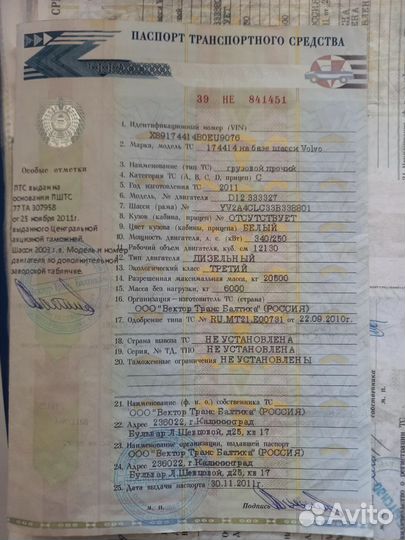 ПАСПОРТ ТРАНСПОРТНОГО СРЕДСТВА
39 НЕ 841451
1. Идентификационный номер (VIN)
X89174414B0EU9076
2. Марка, модель ТС 174414 на базе шасси Volvo
3. Наименование (тип ТС) грузовой прочий
4. Категория ТС (А, В, С, D, прицеп) С
5. Год изготовления ТС 2011
6. Модель, № двигателя D12 333327
7. Шасси (рама) № YV2A4CLC33B339801
8. Кузов (кабина, прицеп) № ОТСУТСТВУЕТ
9. Цвет кузова (кабины, прицепа) БЕЛЫЙ
10. Мощность двигателя, л. с. (кВт) 340/250
11. Рабочий объем двигателя, куб. см 12130
12. Тип двигателя ДИЗЕЛЬНЫЙ
13. Экологический класс ТРЕТИЙ
14. Разрешенная максимальная масса, кг 20500
15. Масса без нагрузки, кг 6000
16. Организация - изготовитель ТС (страна)
ООО "Вектор Транс Балтика" (РОССИЯ)
17. Одобрение типа ТС № RU.MT21.E00731 от 22.09.2010г.
18. Страна вывоза ТС НЕ УСТАНОВЛЕНА
19. Серия, № ТД, ТПО НЕ УСТАНОВЛЕНА
20. Таможенные ограничения НЕ УСТАНОВЛЕНЫ
21. Наименование (ф. и. о.) собственника ТС
ООО "Вектор Транс Балтика" (РОССИЯ)
22. Адрес 236022, г.Калининград
Бульвар Л.Шевцовой, д25, кв 17
23. Наименование организации, выдавшей паспорт
ООО "Вектор Транс Балтика" (РОССИЯ)
24. Адрес 236022, г.Калининград
Бульвар Л.Шевцовой, д25, кв 17
25. Дата выдачи паспорта 30.11.2011г.
М. П. Подпись
Особые отметки
ПТС выдан на
основании ПШТС
77 ТА 307958
от 25 ноября 2011г.
выданного Центральной
акцизной таможней.
Шасси 2003 г.в. Модель и номер
двигателя по дополнительной
заводской табличке.
М. П.
Avito